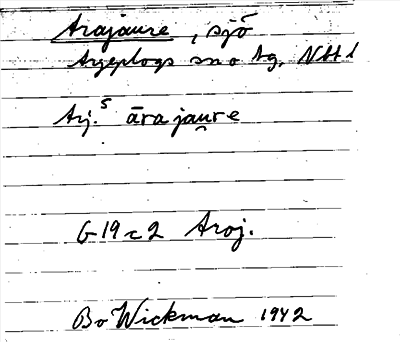 Arajaure, sjö
Arjeplogs sn o tg, Nbt l
Arj.⁵ āra jau̯re
G 19 c 2 Aroj.
Bo Wickman 1942